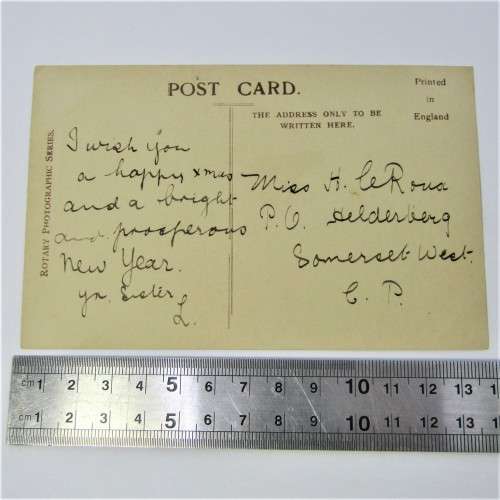 POST CARD.
Printed
in
England
THE ADDRESS ONLY TO BE
WRITTEN HERE.
ROTARY PHOTOGRAPHIC SERIES.
I wish you
a happy xmas
and a bright
and prosperous
New Year.
yr. Sister
L.
Miss H. LeRoux
P.O. Helderberg
Somerset West.
C. P.
cm 1 2 3 4 5 6 7 8 9 10 11 12 13
cm 1 2 3 4 5 6 7 8 9 10 11 12 13